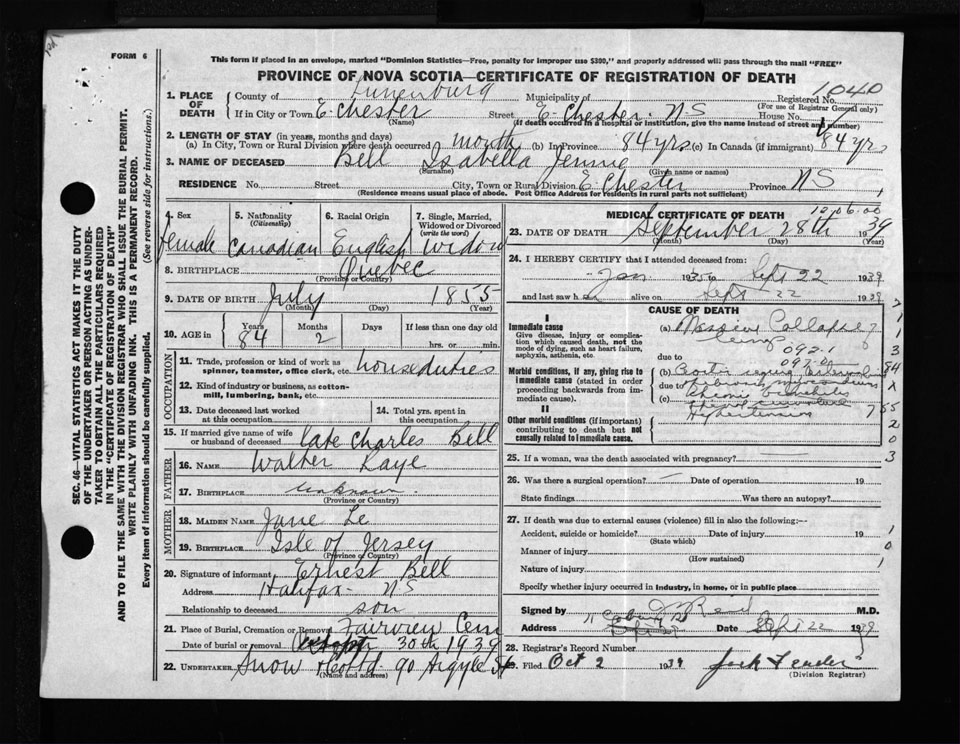 FORM 6
This form if placed in an envelope, marked "Dominion Statistics—Free, penalty for improper use $300," and properly addressed will pass through the mail "FREE"
PROVINCE OF NOVA SCOTIA—CERTIFICATE OF REGISTRATION OF DEATH
1040
1. PLACE OF DEATH County of Lunenburg Municipality of Registered No.
(For use of Registrar General only)
If in City or Town E. Chester Street E. Chester. NS House No.
(Name) (If death occurred in a hospital or institution, give the name instead of street and number)
2. LENGTH OF STAY (in years, months and days)
(a) In City, Town or Rural Division where death occurred month (b) In Province 84 yrs (c) In Canada (if immigrant) 84 yrs
3. NAME OF DECEASED Bell Isabella Jennie
(Surname) (Given name or names)
RESIDENCE No. Street City, Town or Rural Division E Chester Province NS
(Residence means usual place of abode. Post Office Address for residents in rural parts not sufficient)
4. Sex 5. Nationality (Citizenship) 6. Racial Origin 7. Single, Married, Widowed or Divorced (write the word)
female Canadian English widow
8. BIRTHPLACE Quebec
(Province or Country)
9. DATE OF BIRTH July 1855
(Month) (Day) (Year)
10. AGE in Years Months Days If less than one day
84 2 hrs. or min.
OCCUPATION
11. Trade, profession or kind of work as spinner, teamster, office clerk, etc. houseduties
12. Kind of industry or business, as cotton-mill, lumbering, bank, etc.
13. Date deceased last worked at this occupation
14. Total yrs. spent in this occupation
15. If married give name of wife or husband of deceased late Charles Bell
FATHER
16. NAME Walter Laye
17. BIRTHPLACE unknown
(Province or Country)
MOTHER
18. MAIDEN NAME Jane Le
19. BIRTHPLACE Isle of Jersey
(Province or Country)
20. Signature of informant Ernest Bell
Address Halifax NS
Relationship to deceased son
21. Place of Burial, Cremation or Removal Fairview Cem
Date of burial or removal Sept 30th 1939
22. UNDERTAKER Snow & Co Ltd. 90 Argyle St
(Name and address)
MEDICAL CERTIFICATE OF DEATH
10.06.00
23. DATE OF DEATH September 28th 1939
(Month) (Day) (Year)
24. I HEREBY CERTIFY that I attended deceased from:
Jan 1935 to Sept 22 1939
and last saw h er alive on Sept 22 1939
CAUSE OF DEATH
I
Immediate cause
Give disease, injury or complication which caused death, not the mode of dying, such as heart failure, asphyxia, asthenia, etc.
(a) Massive Collapse
lung
092.1
due to
Morbid conditions, if any, giving rise to immediate cause (stated in order proceeding backwards from immediate cause).
(b)
due to
(c)
II
Other morbid conditions (if important) contributing to death but not causally related to immediate cause.
Hypertension
25. If a woman, was the death associated with pregnancy?
26. Was there a surgical operation? Date of operation 19
State findings Was there an autopsy?
27. If death was due to external causes (violence) fill in also the following:—
Accident, suicide or homicide? Date of injury 19
(State which)
Manner of injury
(How sustained)
Nature of injury
Specify whether injury occurred in industry, in home, or in public place
Signed by M.D.
Address Date Sept 22 1939
28. Registrar's Record Number
29. Filed Oct 2 1939
(Division Registrar)
SEC. 46—VITAL STATISTICS ACT MAKES IT THE DUTY
OF THE UNDERTAKER OR PERSON ACTING AS UNDER-
TAKER TO OBTAIN ALL THE PARTICULARS REQUIRED
IN THE "CERTIFICATE OF REGISTRATION OF DEATH"
AND TO FILE THE SAME WITH THE DIVISION REGISTRAR WHO SHALL ISSUE THE BURIAL PERMIT.
WRITE PLAINLY WITH UNFADING INK. THIS IS A PERMANENT RECORD.
Every item of information should be carefully supplied. (See reverse side for instructions.)